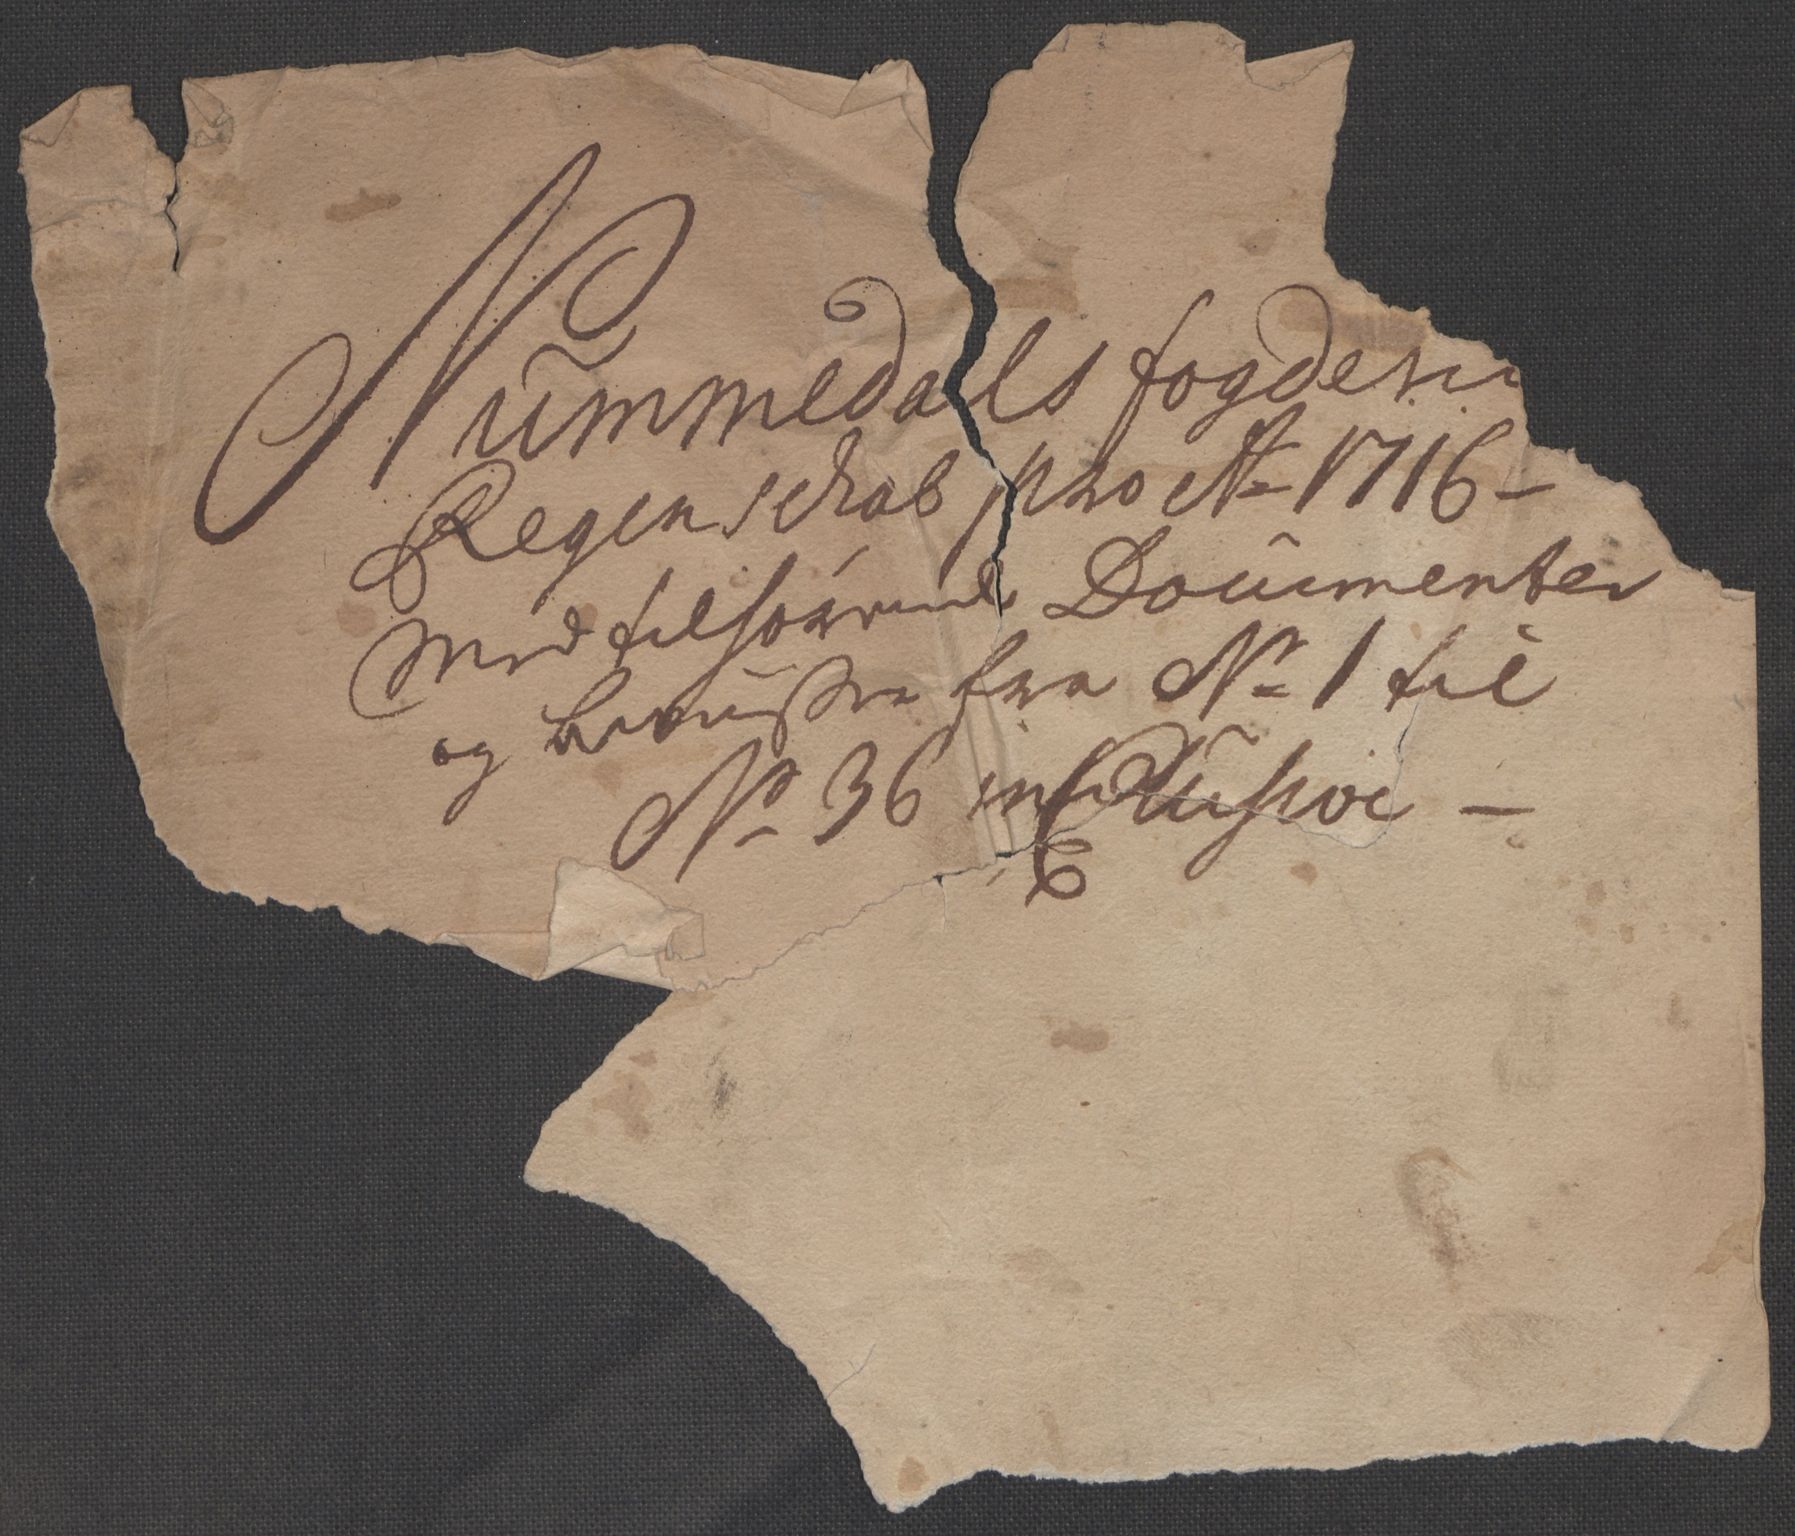 Nummedals fogderie
Regenschab pro Ao 1716 –
med tilhørende Documenter
og beviiser fra No 1 til
No 36 inclusive –